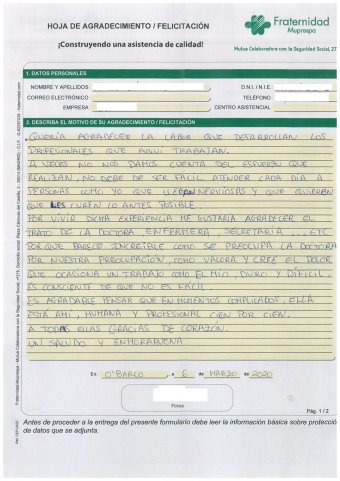 HOJA DE AGRADECIMIENTO / FELICITACIÓN
¡Construyendo una asistencia de calidad!
Fraternidad
Muprespa
Mutua Colaboradora con la Seguridad Social, 27
1. DATOS PERSONALES
NOMBRE Y APELLIDOS
D.N.I. / N.I.E.
CORREO ELECTRÓNICO
TELÉFONO
EMPRESA
CENTRO ASISTENCIAL
2. DESCRIBA EL MOTIVO DE SU AGRADECIMIENTO / FELICITACIÓN
QUERÍA AGRADECER LA LABOR QUE DESARROLLAN LOS
PROFESIONALES QUE AQUÍ TRABAJAN.
A VECES NO NOS DAMOS CUENTA DEL ESFUERZO QUE
REALIZAN, NO DEBE DE SER FACIL ATENDER CADA DÍA A
PERSONAS COMO YO QUE LLEGAN NERVIOSAS Y QUE QUIEREN
QUE LES CUREN LO ANTES POSIBLE.
POR VIVIR DICHA EXPERIENCIA ME GUSTARÍA AGRADECER EL
TRATO DE LA DOCTORA, ENFERMERA, SECRETARIA... ETC
PORQUE PARECE INCREÍBLE COMO SE PREOCUPA LA DOCTORA
POR NUESTRA PREOCUPACIÓN, COMO VALORA Y CREE EL DOLOR
QUE OCASIONA UN TRABAJO COMO EL MÍO, DURO Y DIFÍCIL.
ES CONSCIENTE DE QUE NO ES FÁCIL.
ES AGRADABLE PENSAR QUE EN MOMENTOS COMPLICADOS, ELLA
ESTÁ AHÍ, HUMANA Y PROFESIONAL CIEN POR CIEN.
A TODAS ELLAS GRACIAS DE CORAZÓN.
UN SALUDO Y ENHORABUENA
En O'BARCO, a 6 MARZO 2020
Firma
Pág. 1 / 2
Antes de proceder a la entrega del presente formulario debe leer la información básica sobre protecció
de datos que se adjunta.